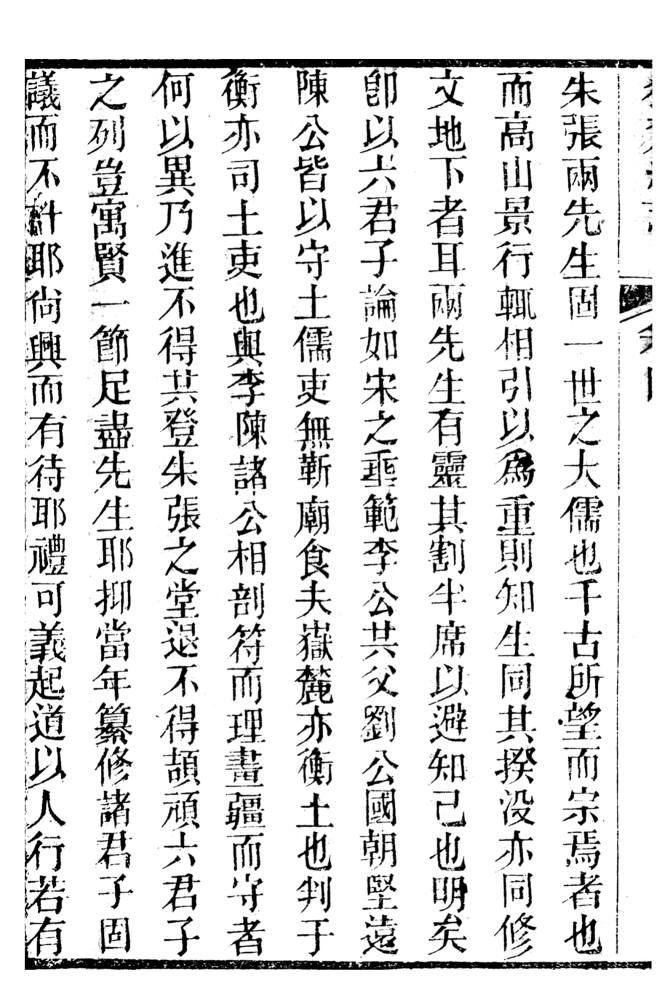 朱張兩先生固一世之大儒也千古所望而宗焉者也
而高山景行輒相引以為重則知生同其揆没亦同修
文地下者耳兩先生有靈其割半席以避知己也明矣
卽以六君子論如宋之埀範李公共父劉公國朝堅遠
陳公皆以守土儒吏無靳廟食夫嶽麓亦衡土也判于
衡亦司土吏也與李陳諸公相剖符而理畫疆而守者
何以異乃進不得共登朱張之堂退不得頡頏六君子
之列豈寓賢一節足盡先生耶抑當年纂修諸君子固
議而不斗耶尙興而有待耶禮可義起道以人行若有